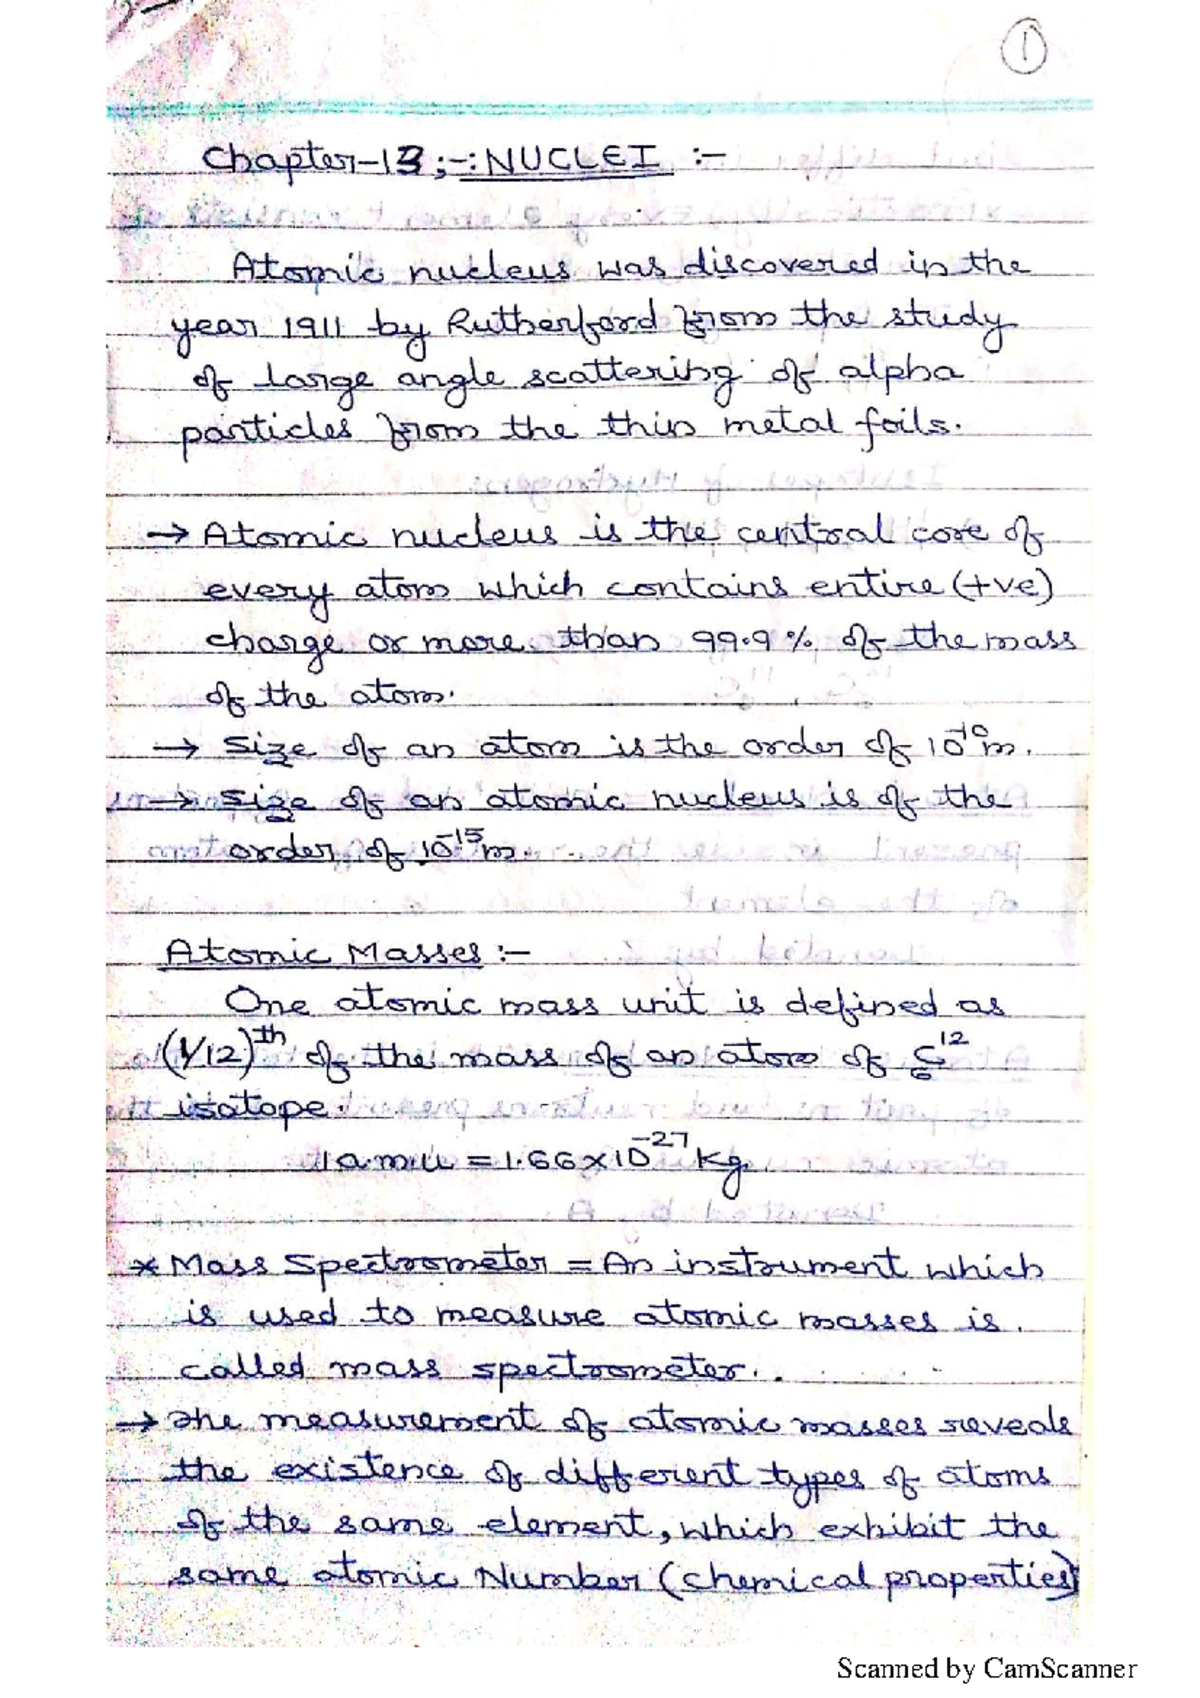 1
Chapter-13 ;-: NUCLEI :-
Atomic nucleus was discovered in the
year 1911 by Rutherford from the study
of large angle scattering of alpha
particles from the thin metal foils.
→ Atomic nucleus is the central core of
every atom which contains entire (+ve)
charge or more than 99.9% of the mass
of the atom.
→ Size of an atom is the order of 10⁻¹⁰m.
→ Size of an atomic nucleus is of the
order of 10⁻¹⁵m.
Atomic Masses :-
One atomic mass unit is defined as
(1/12)ᵗʰ of the mass of an atom of ₆C¹²
isotope.
1a.m.u = 1.66×10⁻²⁷ Kg.
* Mass Spectrometer = An instrument which
is used to measure atomic masses is
called mass spectrometer.
→ The measurement of atomic masses reveals
the existence of different types of atoms
of the same element, which exhibit the
same atomic Number (chemical properties)
Scanned by CamScanner